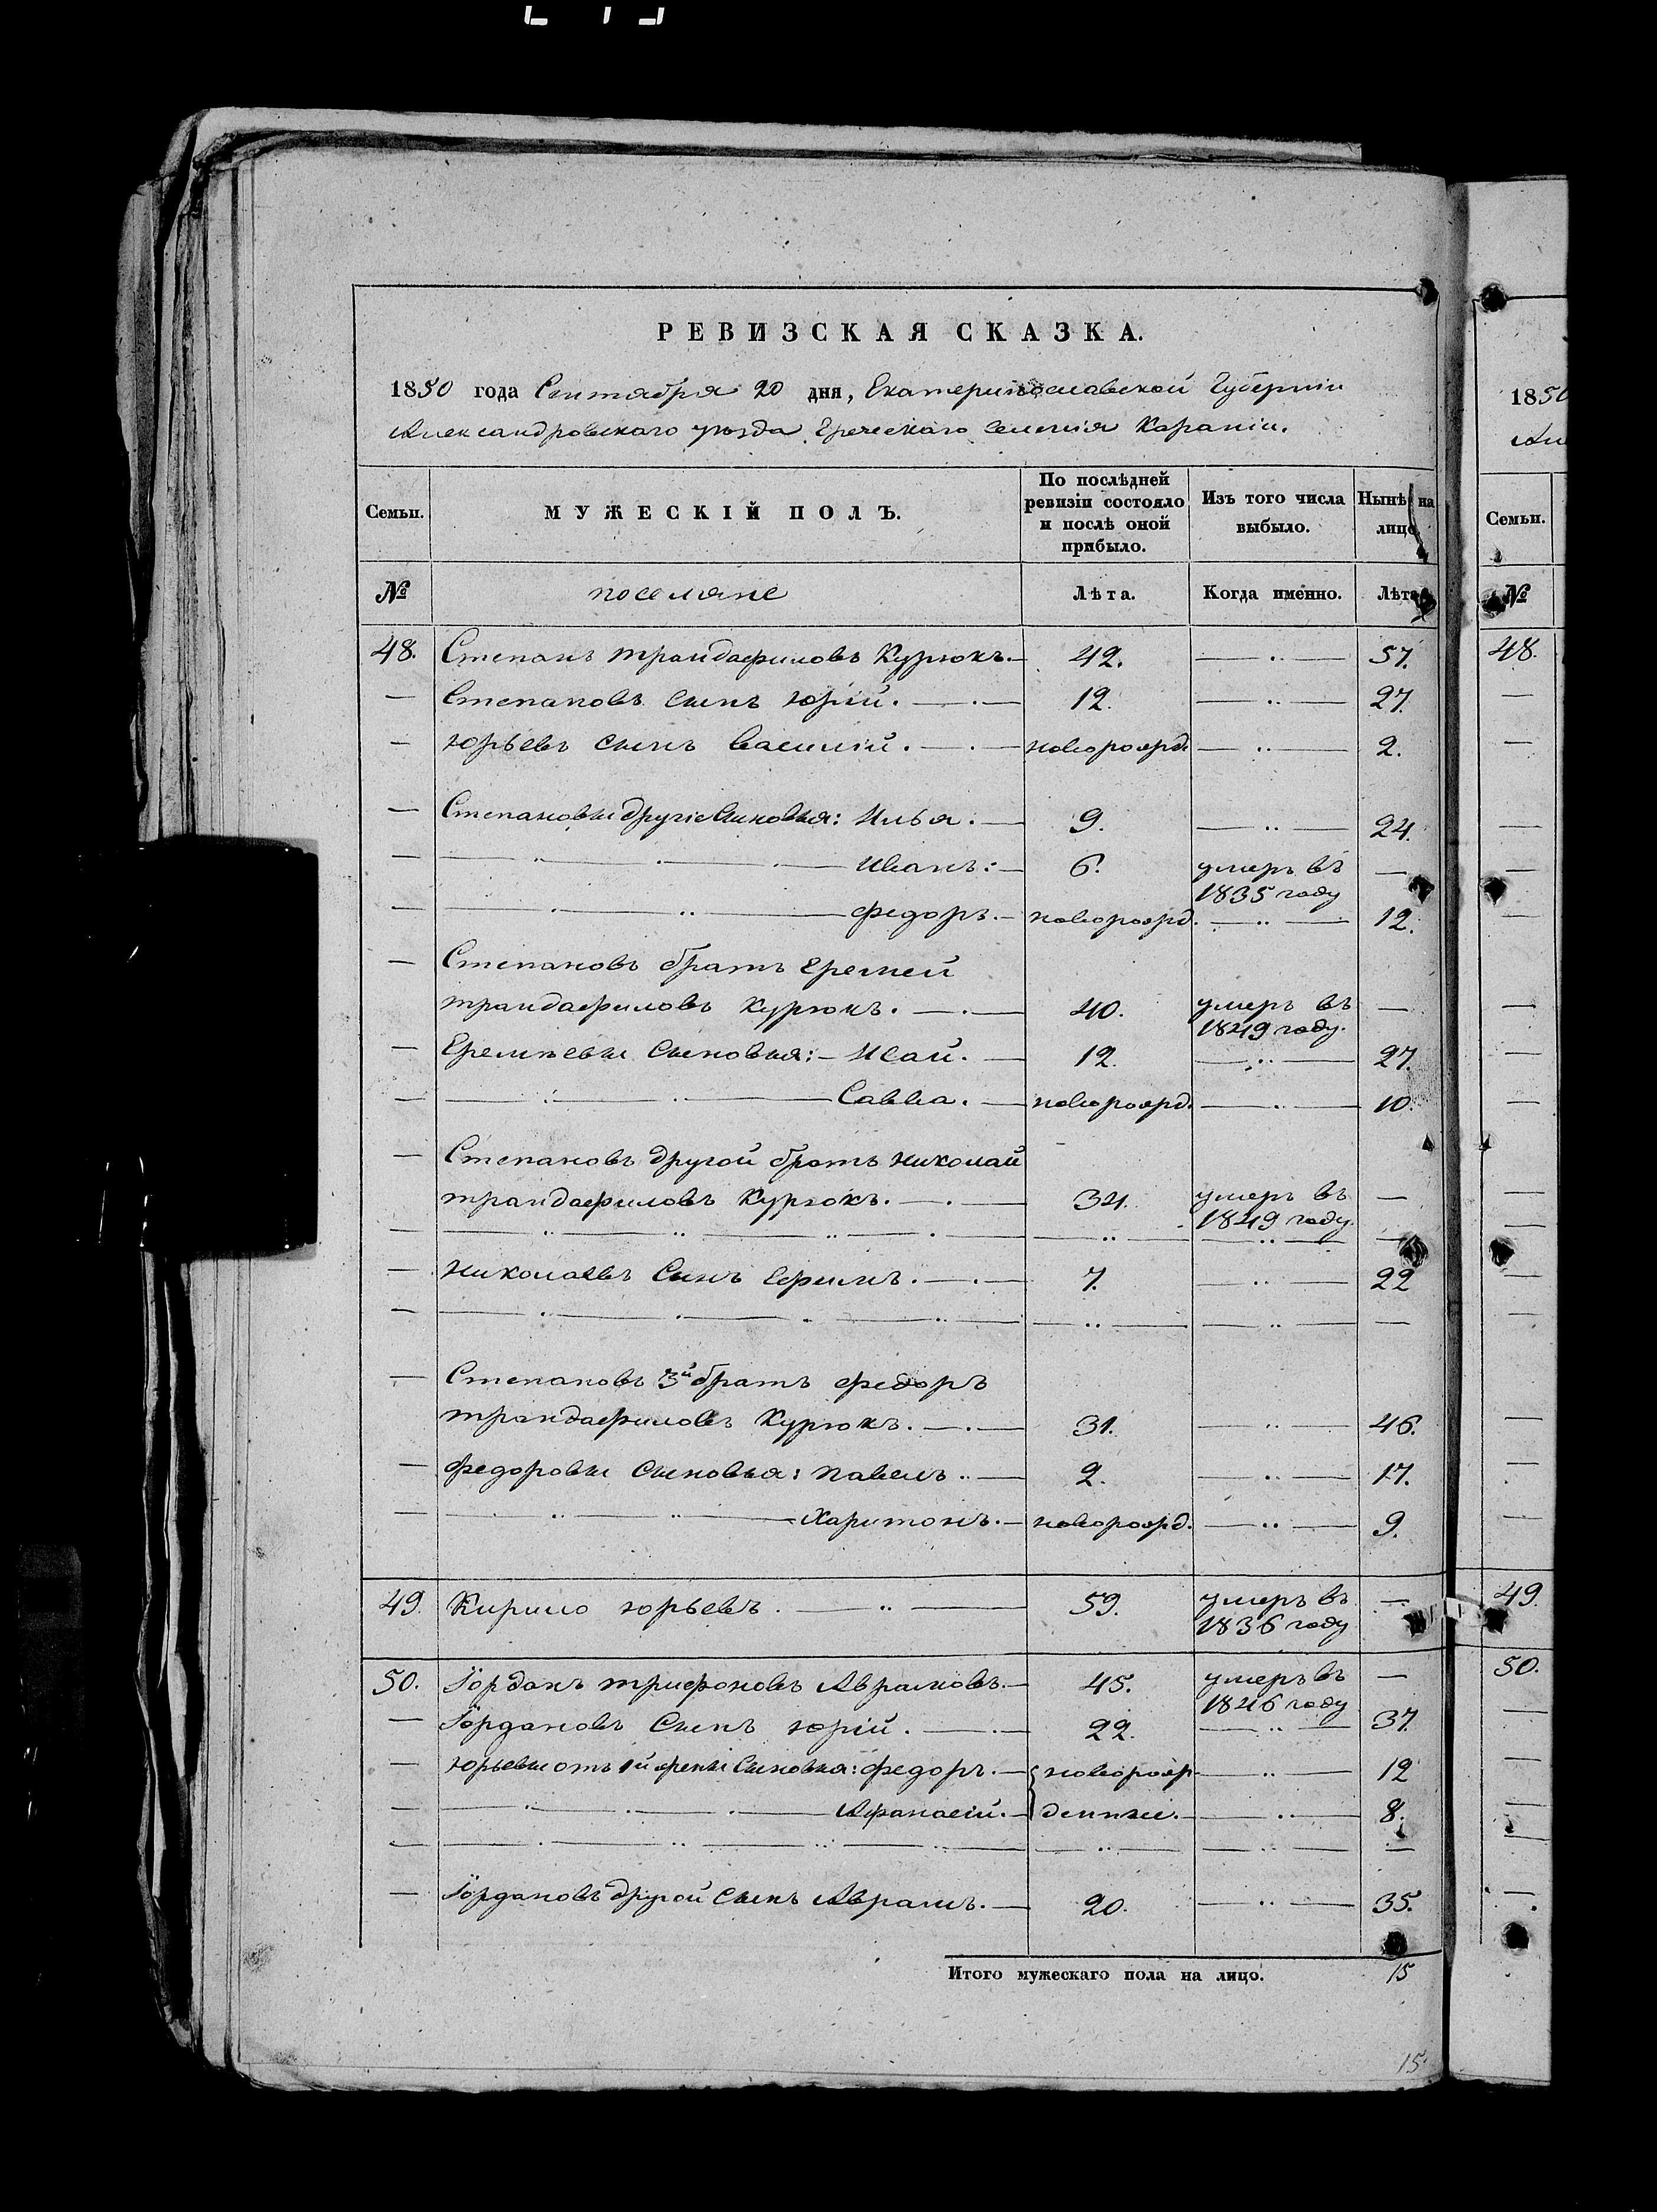 РЕВИЗСКАЯ СКАЗКА.
1850 года Сентября 20 дня, Екатеринославской Губерніи
Александровскаго уѣзда Греческаго селенія Караніи.
Семьи. МУЖЕСКІЙ ПОЛЪ. По послѣдней ревизіи состояло и послѣ оной прибыло. Изъ того числа выбыло. Нынѣ на лицо.
№ поселяне Лѣта. Когда именно. Лѣта
48. Степанъ трандафиловъ Курюкъ. 42. 57.
Степановъ сынъ юрій. 12. 27.
юрьевъ сынъ василій. новорожд. 2.
Степановы другіе Сыновья: Илья. 9. 24.
Иванъ: 6. умеръ въ 1835 году
федоръ. новорожд. 12.
Степановъ братъ Еремей
трандафиловъ Курюкъ. 40. умеръ въ 1849 году.
Еремѣевы Сыновья: Исай. 12. 27.
Савва. новорожд. 10.
Степановъ другой братъ николай
трандафиловъ Курюкъ. 34. умеръ въ 1849 году.
николаевъ Сынъ Ефимъ. 7. 22
Степановъ 3й братъ федоръ
трандафиловъ Курюкъ. 31. 46.
федоровы сыновья: павелъ. 2. 17.
Харитонъ. новорожд. 9.
49. Кирило юрьевъ. 59. умеръ въ 1836 году
50. Іорданъ трифоновъ Аврамовъ. 45. умеръ въ 1846 году
Іордановъ Сынъ юрій. 22. 37.
юрьевы отъ 1й жены Сыновья: федоръ. новорож- 12
Афанасій. денные. 8.
Іордановъ другой сынъ Аврамъ. 20. 35.
Итого мужескаго пола на лицо. 15
15
1850
Семьи.
№
48.
49.
50.